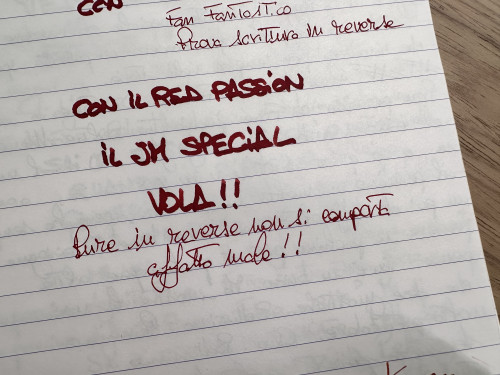 CON
Fan Fantastico
Prova scrittura in reverse
CON IL RED PASSION
IL JH SPECIAL
VOLA!!
Pure in reverse non si comporta
affatto male!!